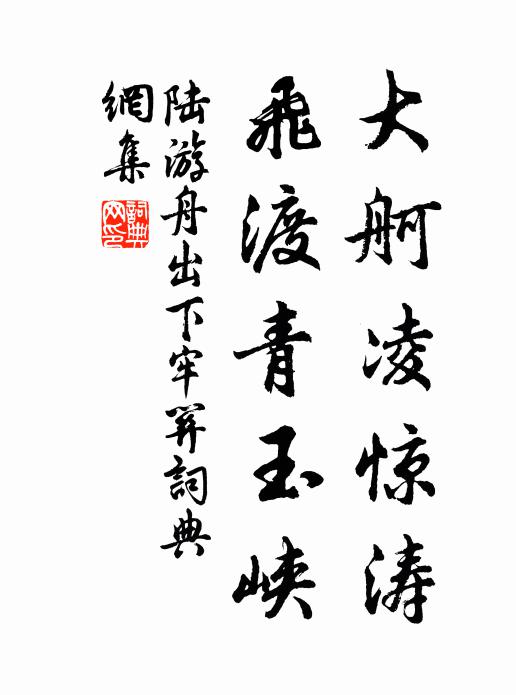 大舸凌惊涛
飛渡青玉峡
陆游舟出下牢関詞典
網集
詞典網印